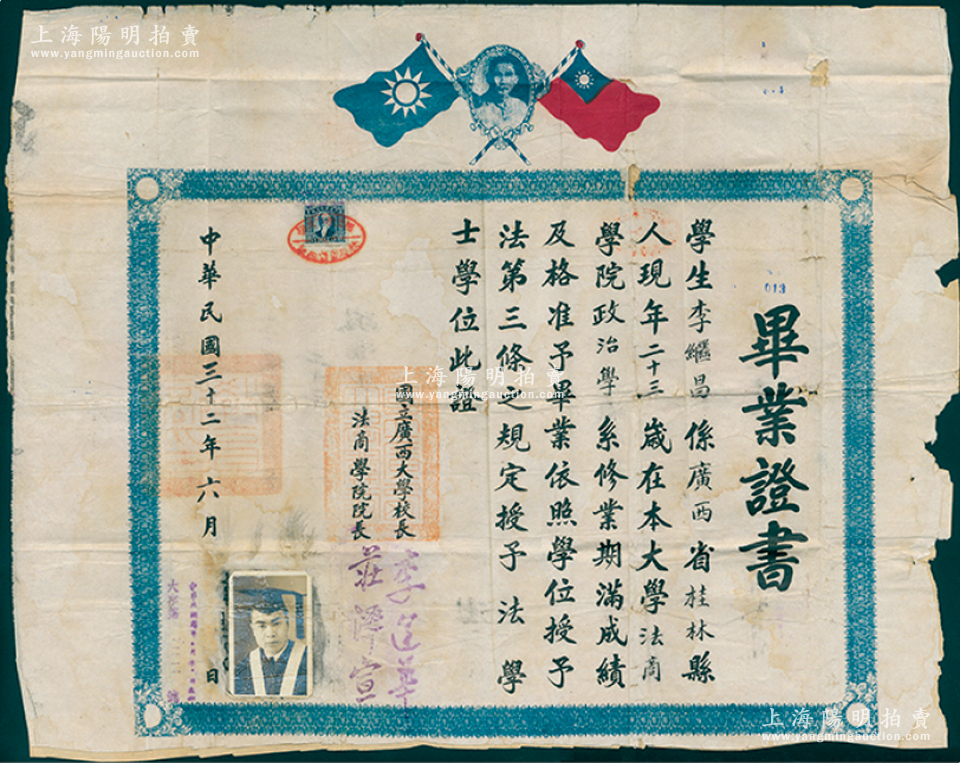 上海陽明拍賣
www.yangmingauction.com
013
畢業證書
學生李繼昌係廣西省桂林縣
人現年二十三歲在本大學法商
學院政治學系修業期滿成績
及格准予畢業依照學位授予
法第三條之規定授予法學
士學位此證
國立廣西大學校長
李運華
法商學院院長
莊澤宣
中華民國三十二年六月
日
上海陽明拍賣
www.yangmingauction.com
上海陽明拍賣
www.yangmingauction.com